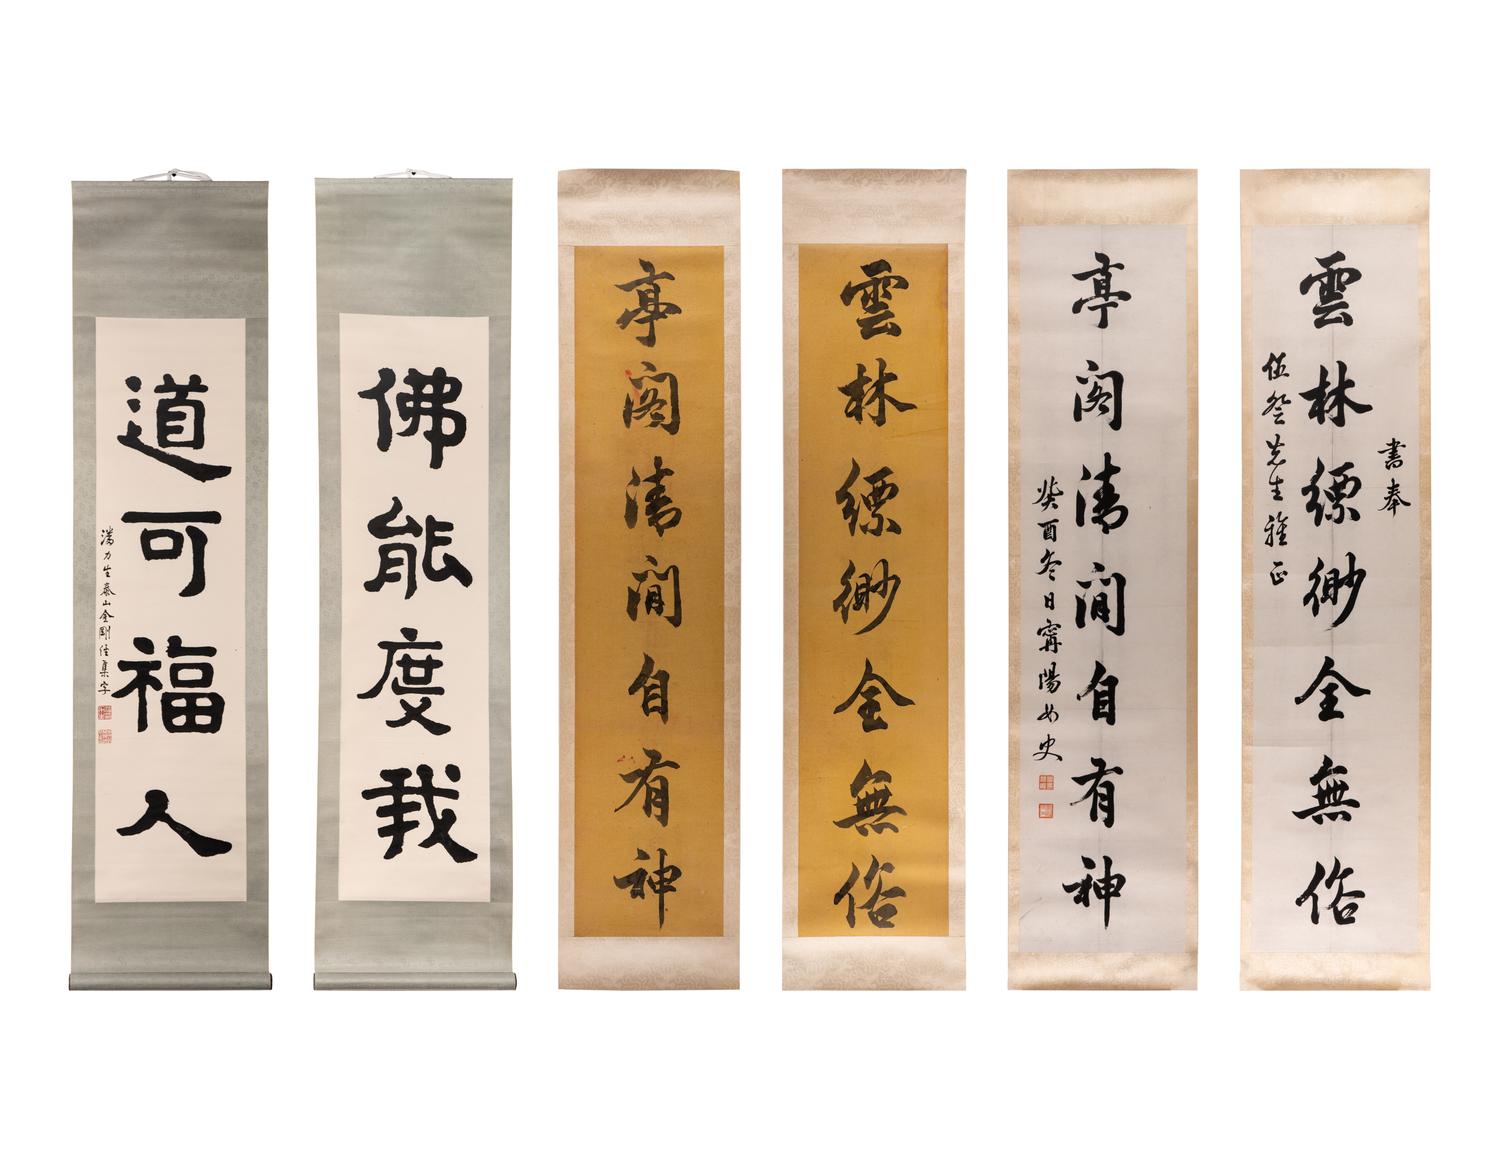 雲林縹緲全無俗
書奉
伍詧先生雅正
亭閣清閒自有神
癸酉冬日甯陽女史
雲林縹緲全無俗
亭閣清閒自有神
佛能度我
道可福人
潘力生泰山金剛經集字